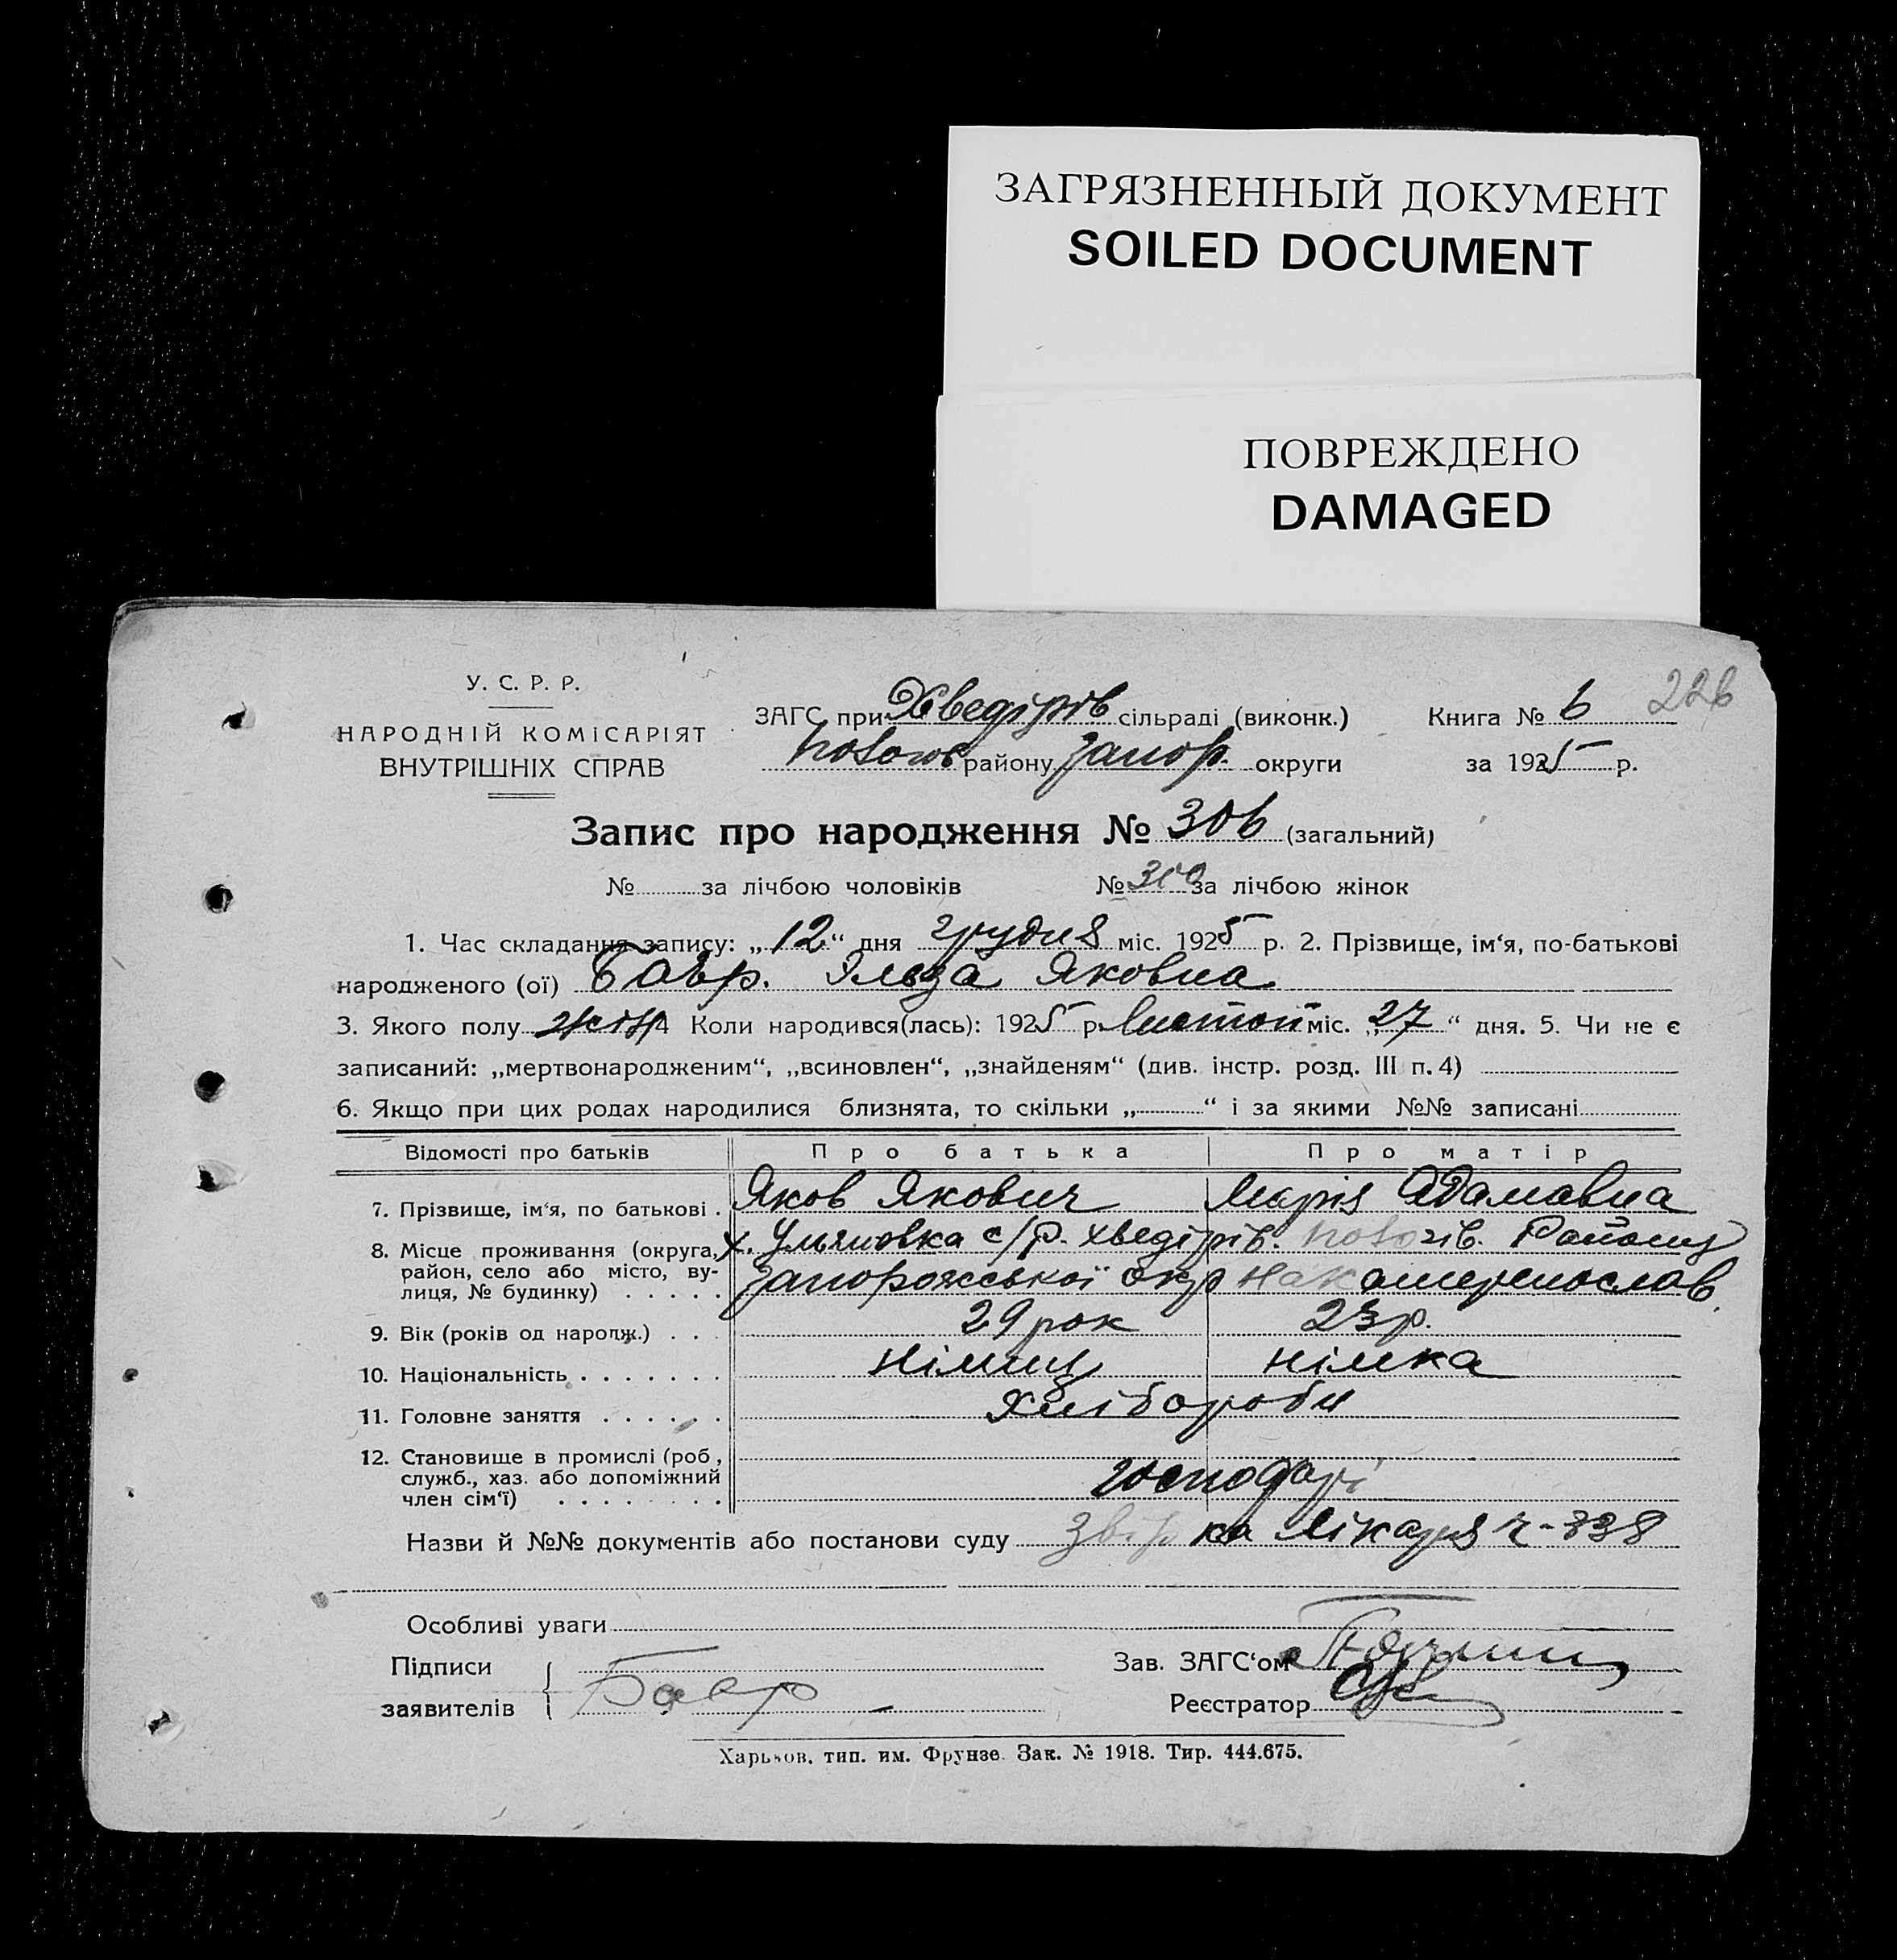 ЗАГРЯЗНЕННЫЙ ДОКУМЕНТ
SOILED DOCUMENT
ПОВРЕЖДЕНО
DAMAGED
226
У. С. Р. Р.
НАРОДНІЙ КОМІСАРІЯТ
ВНУТРІШНІХ СПРАВ
ЗАГС при Хведірів сільраді (виконк.) Книга № 6
району Запор. округи за 1925 р.
Запис про народження № 306 (загальний)
№ за лічбою чоловіків № за лічбою жінок
1. Час складання запису: „12“ дня грудня міс. 1925 р. 2. Прізвище, ім‘я, по-батькові
народженого (ої) Бавр. Ільза Яковна
3. Якого полу жін 4 Коли народився(лась): 1925 р. Листоп міс. „27“ дня. 5. Чи не є
записаний: „мертвонародженим“, „всиновлен“, „знайденям“ (див. інстр. розд. III п. 4)
6. Якщо при цих родах народилися близнята, то скільки „ “ і за якими №№ записані
Відомості про батьків Про батька Про матір
7. Прізвище, ім‘я, по батькові . Яков Якович Марія Адамавна
8. Місце проживання (округа, район, село або місто, вулиця, № будинку) . . . . . х. Ульяновка с/р. Хведірів. Району
Запорожської окр
9. Вік (років од народж.) . . . 29 рок 23 р.
10. Національність . . . . . . . німец німка
11. Головне заняття . . . . . . Хлібороби
12. Становище в промислі (роб., служб., хаз. або допоміжний член сім‘ї) . . . . . . . . господарі
Назви й №№ документів або постанови суду ка лікаря ч-338
Особливі уваги
Підписи
заявителів Бавр
Зав. ЗАГС‘ом
Реєстратор
Харьков, тип. им. Фрунзе. Зак. № 1918. Тир. 444.675.